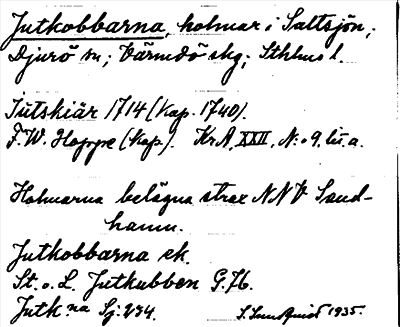 Jutkobbarna, holmar i Saltsjön,
Djurö sn; Värmdö skg; Sthlms l.
Jutskiär 1714 (Kap. 1740).
F.W. Hoppe (Kap). KrA, XXII, N:o 9 lit. a.
Holmarna belägna strax NNV Sand-
hamn.
Jutkobbarna ek.
St. o. L. Jutkubben G.76.
Jutk:na Sj: 234.
S. Sundquist 1935.